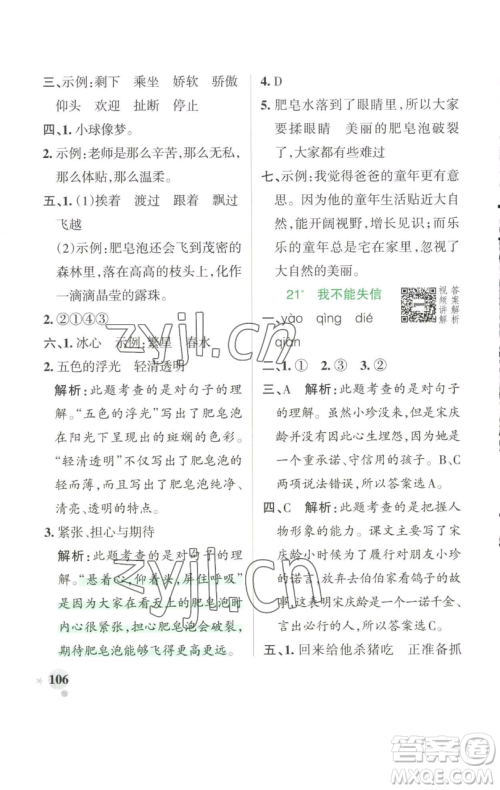 三、示例:剩下 乘坐 娇软 骄傲
仰头 欢迎 扯断 停止
四、1. 小球像梦。
2. 示例:老师是那么辛苦,那么无私,
那么体贴,那么温柔。
五、1. (1)挨着 渡过 跟着 飘过
飞越
(2)示例:肥皂泡还会飞到茂密的
森林里,落在高高的枝头上,化作
一滴滴晶莹的露珠。
2. ②①④③
六、1. 冰心 示例:繁星 春水
2. 五色的浮光 轻清透明
解析:此题考查的是对句子的
理解。“五色的浮光”写出了肥皂泡
在阳光下呈现出的斑斓的色彩。
“轻清透明”不仅写出了肥皂泡的
轻薄透明,还写出了肥皂泡纯净、
清亮、透明的特点。
3. 紧张、担心与期待
解析:此题考查的是对句子的
理解。“悬着心,仰着头,屏住呼吸”
是因为大家在看五上的肥皂泡时
内心很紧张,担心肥皂泡会破裂,
期待肥皂泡能够飞得更高更远。
106
4. D
5. 肥皂水落到了眼睛里,所以大家
要揉眼睛 美丽的肥皂泡破裂
了,大家都有些难过
七、示例:我觉得爸爸的童年更有意
思。因为他的童年生活贴近大自
然,能开阔视野,增长见识;而乐
乐的童年总是宅在家里,没有感受
大自然的美丽。
21* 我不能失信
视频讲解
答案解析
一、yào qìng dié
qiàn
二、1. ① 2. ③ 3. ②
三、A 解析:此题考查的是对句子
的理解。虽然小珍没来,但是宋庆
龄并没有因此心生埋怨,说明宋庆
龄是诚实、守信用的孩子。B、C
两项说法错误,所以答案选 A。
四、C 解析:此题考查的是把握人
物形象的能力。课文主要写了宋
庆龄小时候为了履行对朋友小珍
的诺言,放弃去伯伯家看鸽子的故
事,体现了宋庆龄是一个一诺千
金、言出必行的人。所以答案选 C。
五、1. 回来给他杀猪吃 正准备抓
zyjl.cn
zyjl.cn
答案圈
MXQE.COM